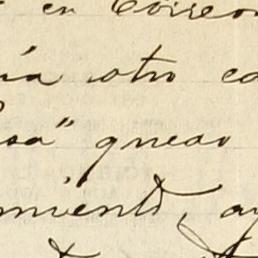 en Correo
ía otro co
sa" quedo
miento, ay